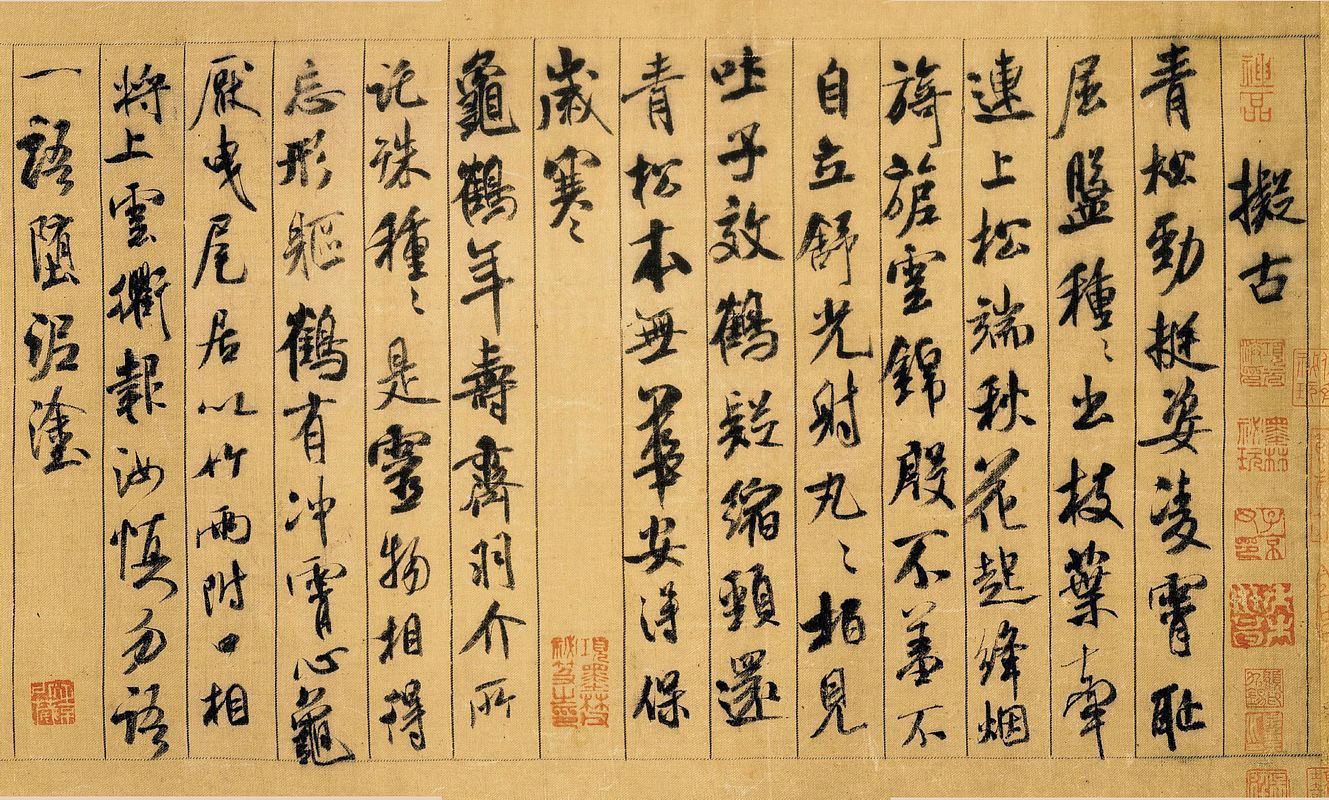 擬古
青松勁挺姿凌霄耻
屈盤種種出枝葉牽
連上松端秋花起絳烟
旖旎雲錦殷不羞不
自立舒光射丸丸柏見
吐子效鶴疑縮頸還
青松本無華安得保
歲寒
龜鶴年壽齊羽介所
託殊種種是靈物相得
忘形軀鶴有冲霄心龜
厭曳尾居以竹兩附口相
將上雲衢報汝慎勿語
一語墮泥塗